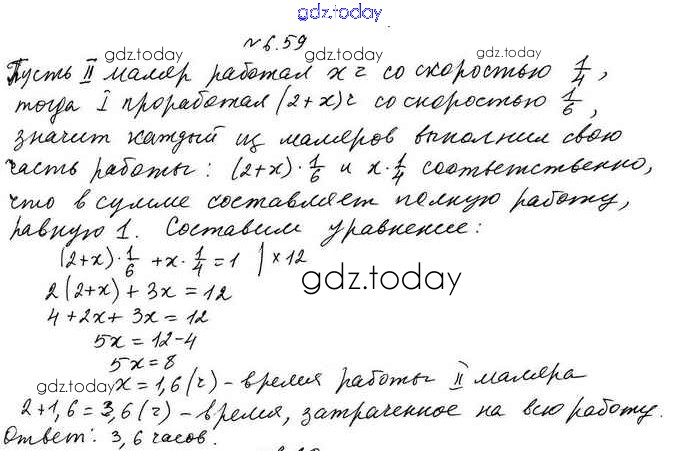 gdz.today
№ 6.59
gdz.today gdz.today
Пусть II маляр работал x ч со скоростью 1/4,
тогда I проработал (2+x)ч со скоростью 1/6,
значит каждый из маляров выполнил свою
часть работы: (2+x)·1/6 и x·1/4 соответственно,
что в сумме составляет полную работу,
равную 1. Составим уравнение:
(2+x)·1/6 + x·1/4 = 1 | ×12
gdz.today
2(2+x) + 3x = 12
4+2x+3x = 12
5x = 12-4
5x = 8
gdz.today
x = 1,6 (ч) - время работы II маляра
gdz.today gdz.today
2+1,6 = 3,6 (ч) - время, затраченное на всю работу.
Ответ: 3,6 часов.